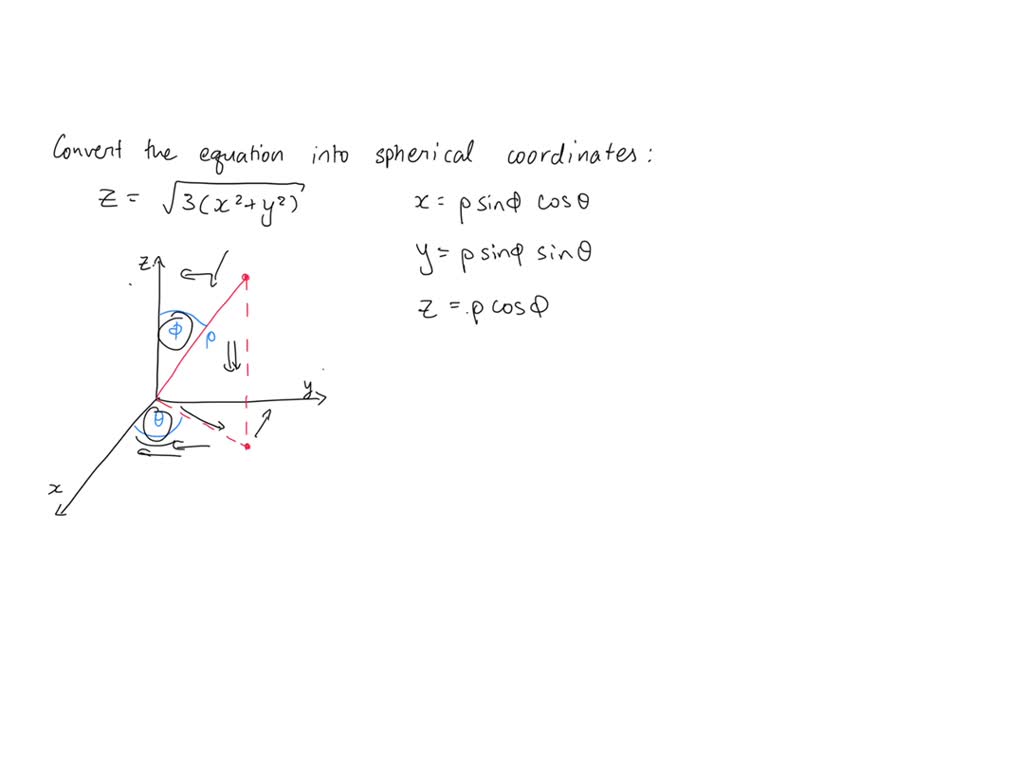 Convert the equation into spherical coordinates:
z = √3(x²+y²)
x = ρ sinϕ cosθ
y = ρ sinϕ sinθ
z = ρ cosϕ
z
ϕ
ρ
y
θ
x